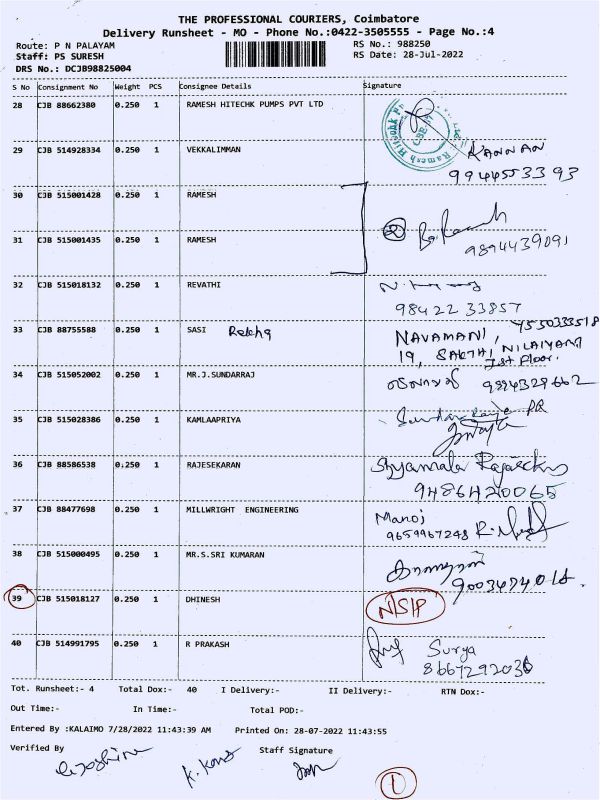 THE PROFESSIONAL COURIERS, Coimbatore
Delivery Runsheet - MO - Phone No.:0422-3505555 - Page No.:4
Route: P N PALAYAM RS No.: 988250
Staff: PS SURESH RS Date: 28-Jul-2022
DRS No.: DCJB98825004
S No Consignment No Weight PCS Consignee Details Signature
28 CJB 88662380 0.250 1 RAMESH HITECHK PUMPS PVT LTD
29 CJB 514928334 0.250 1 VEKKALIMMAN KANNAN
9944553393
30 CJB 515001428 0.250 1 RAMESH
2
31 CJB 515001435 0.250 1 RAMESH 9894439091
32 CJB 515018132 0.250 1 REVATHI
98422 33857
33 CJB 88755588 0.250 1 SASI Rekha NAVAMANI,
19, SAKTHI NILAIYAM
1st Floor.
34 CJB 515052002 0.250 1 MR.J.SUNDARRAJ
35 CJB 515028386 0.250 1 KAMLAAPRIYA
36 CJB 88586538 0.250 1 RAJESEKARAN Shyamala
9486420065
37 CJB 88477698 0.250 1 MILLWRIGHT ENGINEERING Manoj
9659967248
38 CJB 515000495 0.250 1 MR.S.SRI KUMARAN
39 CJB 515018127 0.250 1 DHINESH N/S/P
40 CJB 514991795 0.250 1 R PRAKASH Surya
Tot. Runsheet:- 4 Total Dox:- 40 I Delivery:- II Delivery:- RTN Dox:-
Out Time:- In Time:- Total POD:-
Entered By :KALAIMO 7/28/2022 11:43:39 AM Printed On: 28-07-2022 11:43:55
Verified By Staff Signature